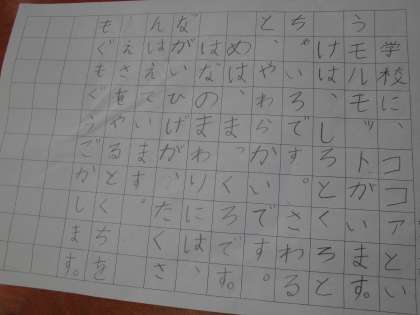 学校に、ココアとい
うモルモットがいます。
けは、しろとくろと
ちゃいろです。さわる
と、やわらかいです。
めは、まっくろです。
はなのまわりには、
ながいひげがたくさ
んはえています。
えさをやるとくちを
もぐもぐうごかします。